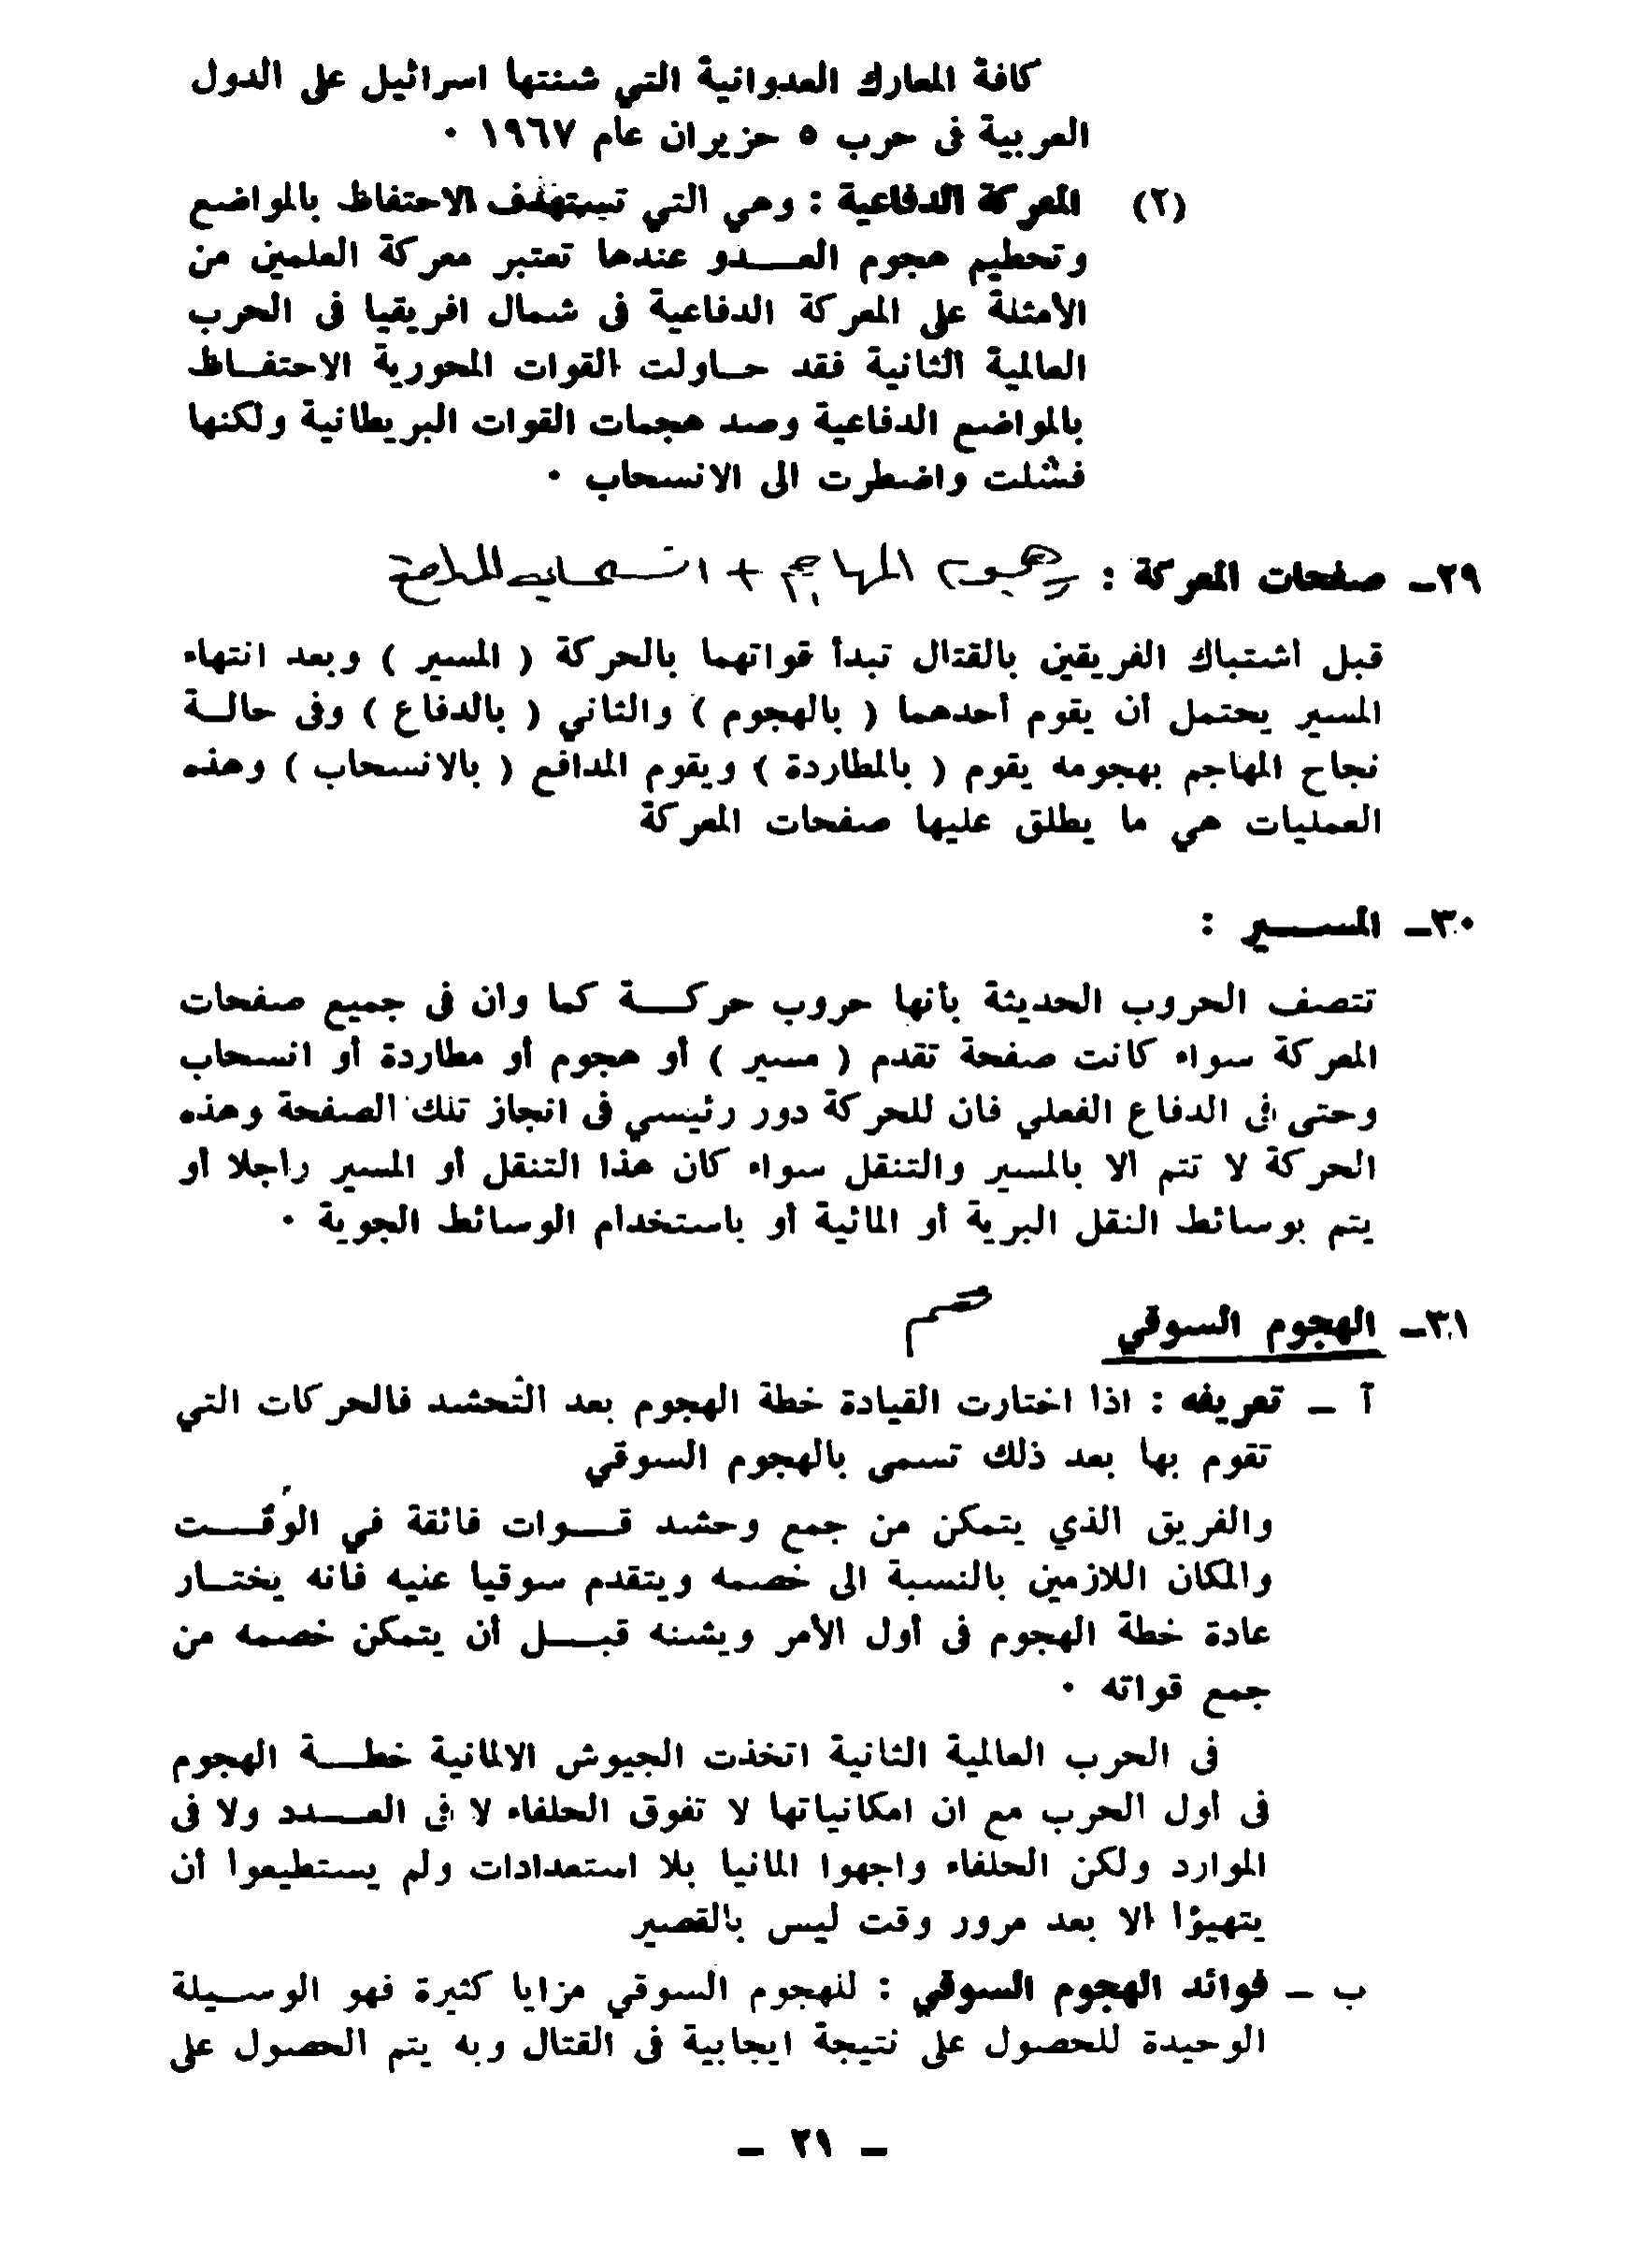 كافة المعارك العدوانية التي شنتها اسرائيل على الدول
العربية فى حرب ٥ حزيران عام ١٩٦٧ ٠
(٢) المعركة الدفاعية : وهي التي تستهدف الاحتفاظ بالمواضع
وتحطيم هجوم العـــدو عندها تعتبر معركة العلمين من
الأمثلة على المعركة الدفاعية فى شمال افريقيا فى الحرب
العالمية الثانية فقد حـاولت القوات المحورية الاحتفـاظ
بالمواضع الدفاعية وصد هجمات القوات البريطانية ولكنها
فشلت واضطرت الى الانسحاب ٠
٢٩ـ صفحات المعركة : هجوم المهاجم + انسحاب
قبل اشتباك الفريقين بالقتال تبدأ قواتهما بالحركة ( المسير ) وبعد انتهاء
المسير يحتمل أن يقوم أحدهما ( بالهجوم ) والثاني ( بالدفاع ) وفى حالـة
نجاح المهاجم بهجومه يقوم ( بالمطاردة ) ويقوم المدافع ( بالانسحاب ) وهذه
العمليات هي ما يطلق عليها صفحات المعركة
٣٠ـ المســـير :
تتصف الحروب الحديثة بأنها حروب حركـــة كما وان فى جميع صفحات
المعركة سواء كانت صفحة تقدم ( مسير ) أو هجوم أو مطاردة أو انسحاب
وحتى فى الدفاع الفعلي فان للحركة دور رئيسي فى انجاز تلك الصفحة وهذه
الحركة لا تتم الا بالمسير والتنقل سواء كان هذا التنقل أو المسير راجلا أو
يتم بوسائط النقل البرية أو المائية أو باستخدام الوسائط الجوية ٠
٣١ـ الهجوم السوقي
آ ـ تعريفه : اذا اختارت القيادة خطة الهجوم بعد التحشد فالحركات التي
تقوم بها بعد ذلك تسمى بالهجوم السوقي
والفريق الذي يتمكن من جمع وحشد قـــوات فائقة في الوقـــت
والمكان اللازمين بالنسبة الى خصمه ويتقدم سوقيا عنيه فانه يختـار
عادة خطة الهجوم فى أول الأمر ويشنه قبـــل أن يتمكن خصمه من
جمع قواته ٠
فى الحرب العالمية الثانية اتخذت الجيوش الالمانية خطـــة الهجوم
فى أول الحرب مع ان امكانياتها لا تفوق الحلفاء لا فى العـــدد ولا فى
الموارد ولكن الحلفاء واجهوا المانيا بلا استعدادات ولم يستطيعوا أن
يتهيؤا الا بعد مرور وقت ليس بالقصير
ب ـ فوائد الهجوم السوقي : للهجوم السوقي مزايا كثيرة فهو الوسـيلة
الوحيدة للحصول على نتيجة ايجابية فى القتال وبه يتم الحصول على
ـ ٢١ ـ